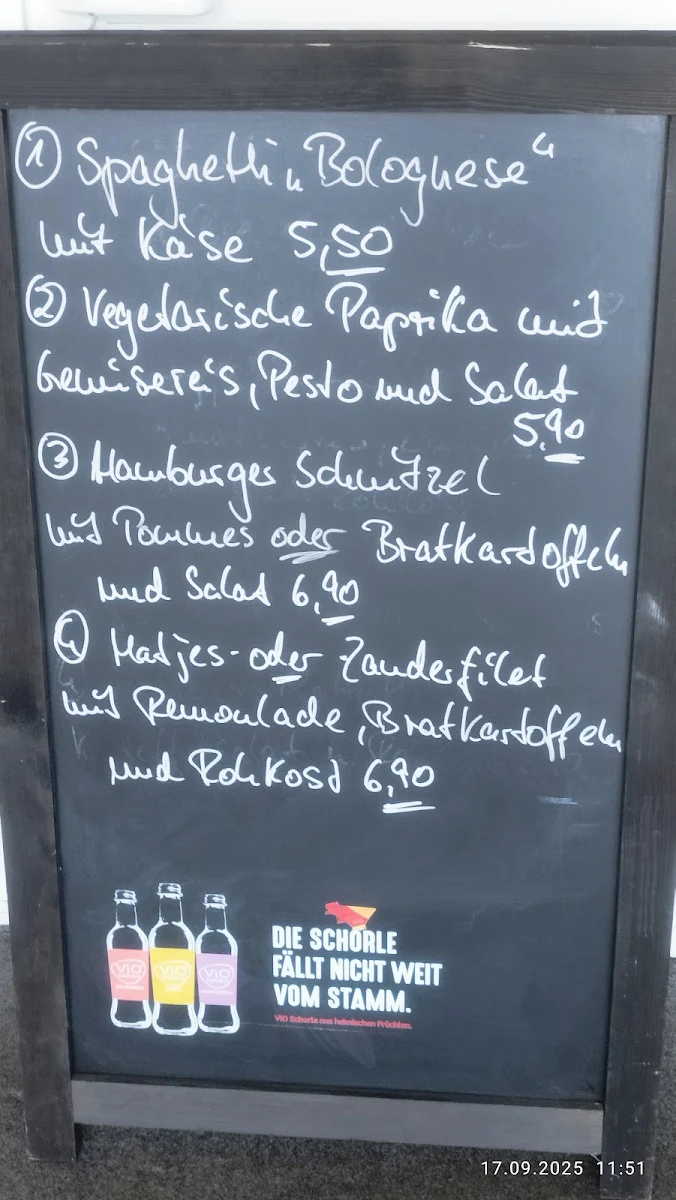 ① Spaghetti „Bolognese“
mit Käse 5,50
② Vegetarische Paprika mit
Gemüsereis, Pesto und Salat
5,90
③ Hamburger Schnitzel
mit Pommes oder Bratkartoffeln
und Salat 6,90
④ Matjes- oder Zanderfilet
mit Remoulade, Bratkartoffeln
und Rohkost 6,90
ViO ViO ViO
DIE SCHORLE
FÄLLT NICHT WEIT
VOM STAMM.
ViO Schorle aus heimischen Früchten.
17.09.2025 11:51